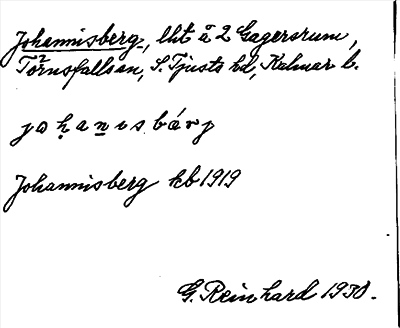 Johannisberg, lht å 2 Gagersrum,
Törnsfalls sn, S. Tjusts hd, Kalmar l.
johanisbärj
Johannisberg kb 1919
G. Reinhard 1930.